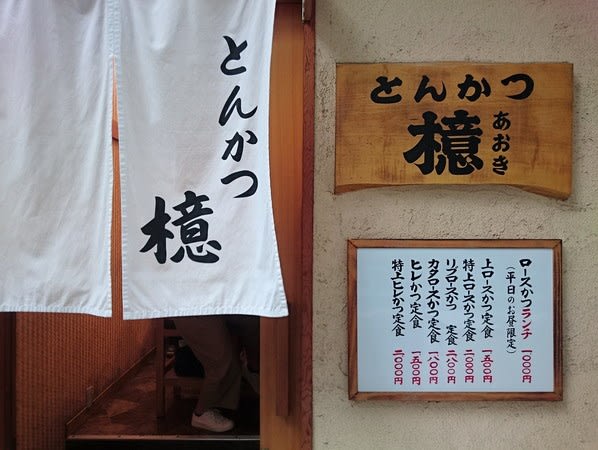 とんかつ
檍
とんかつ
檍
あおき
ロースかつランチ 一〇〇〇円
(平日のお昼限定)
上ロースかつ定食 一五〇〇円
特上ロースかつ定食 二〇〇〇円
リブロースかつ 定食 二八〇〇円
カタロースかつ定食 一八〇〇円
ヒレかつ定食 一五〇〇円
特上ヒレかつ定食 二〇〇〇円